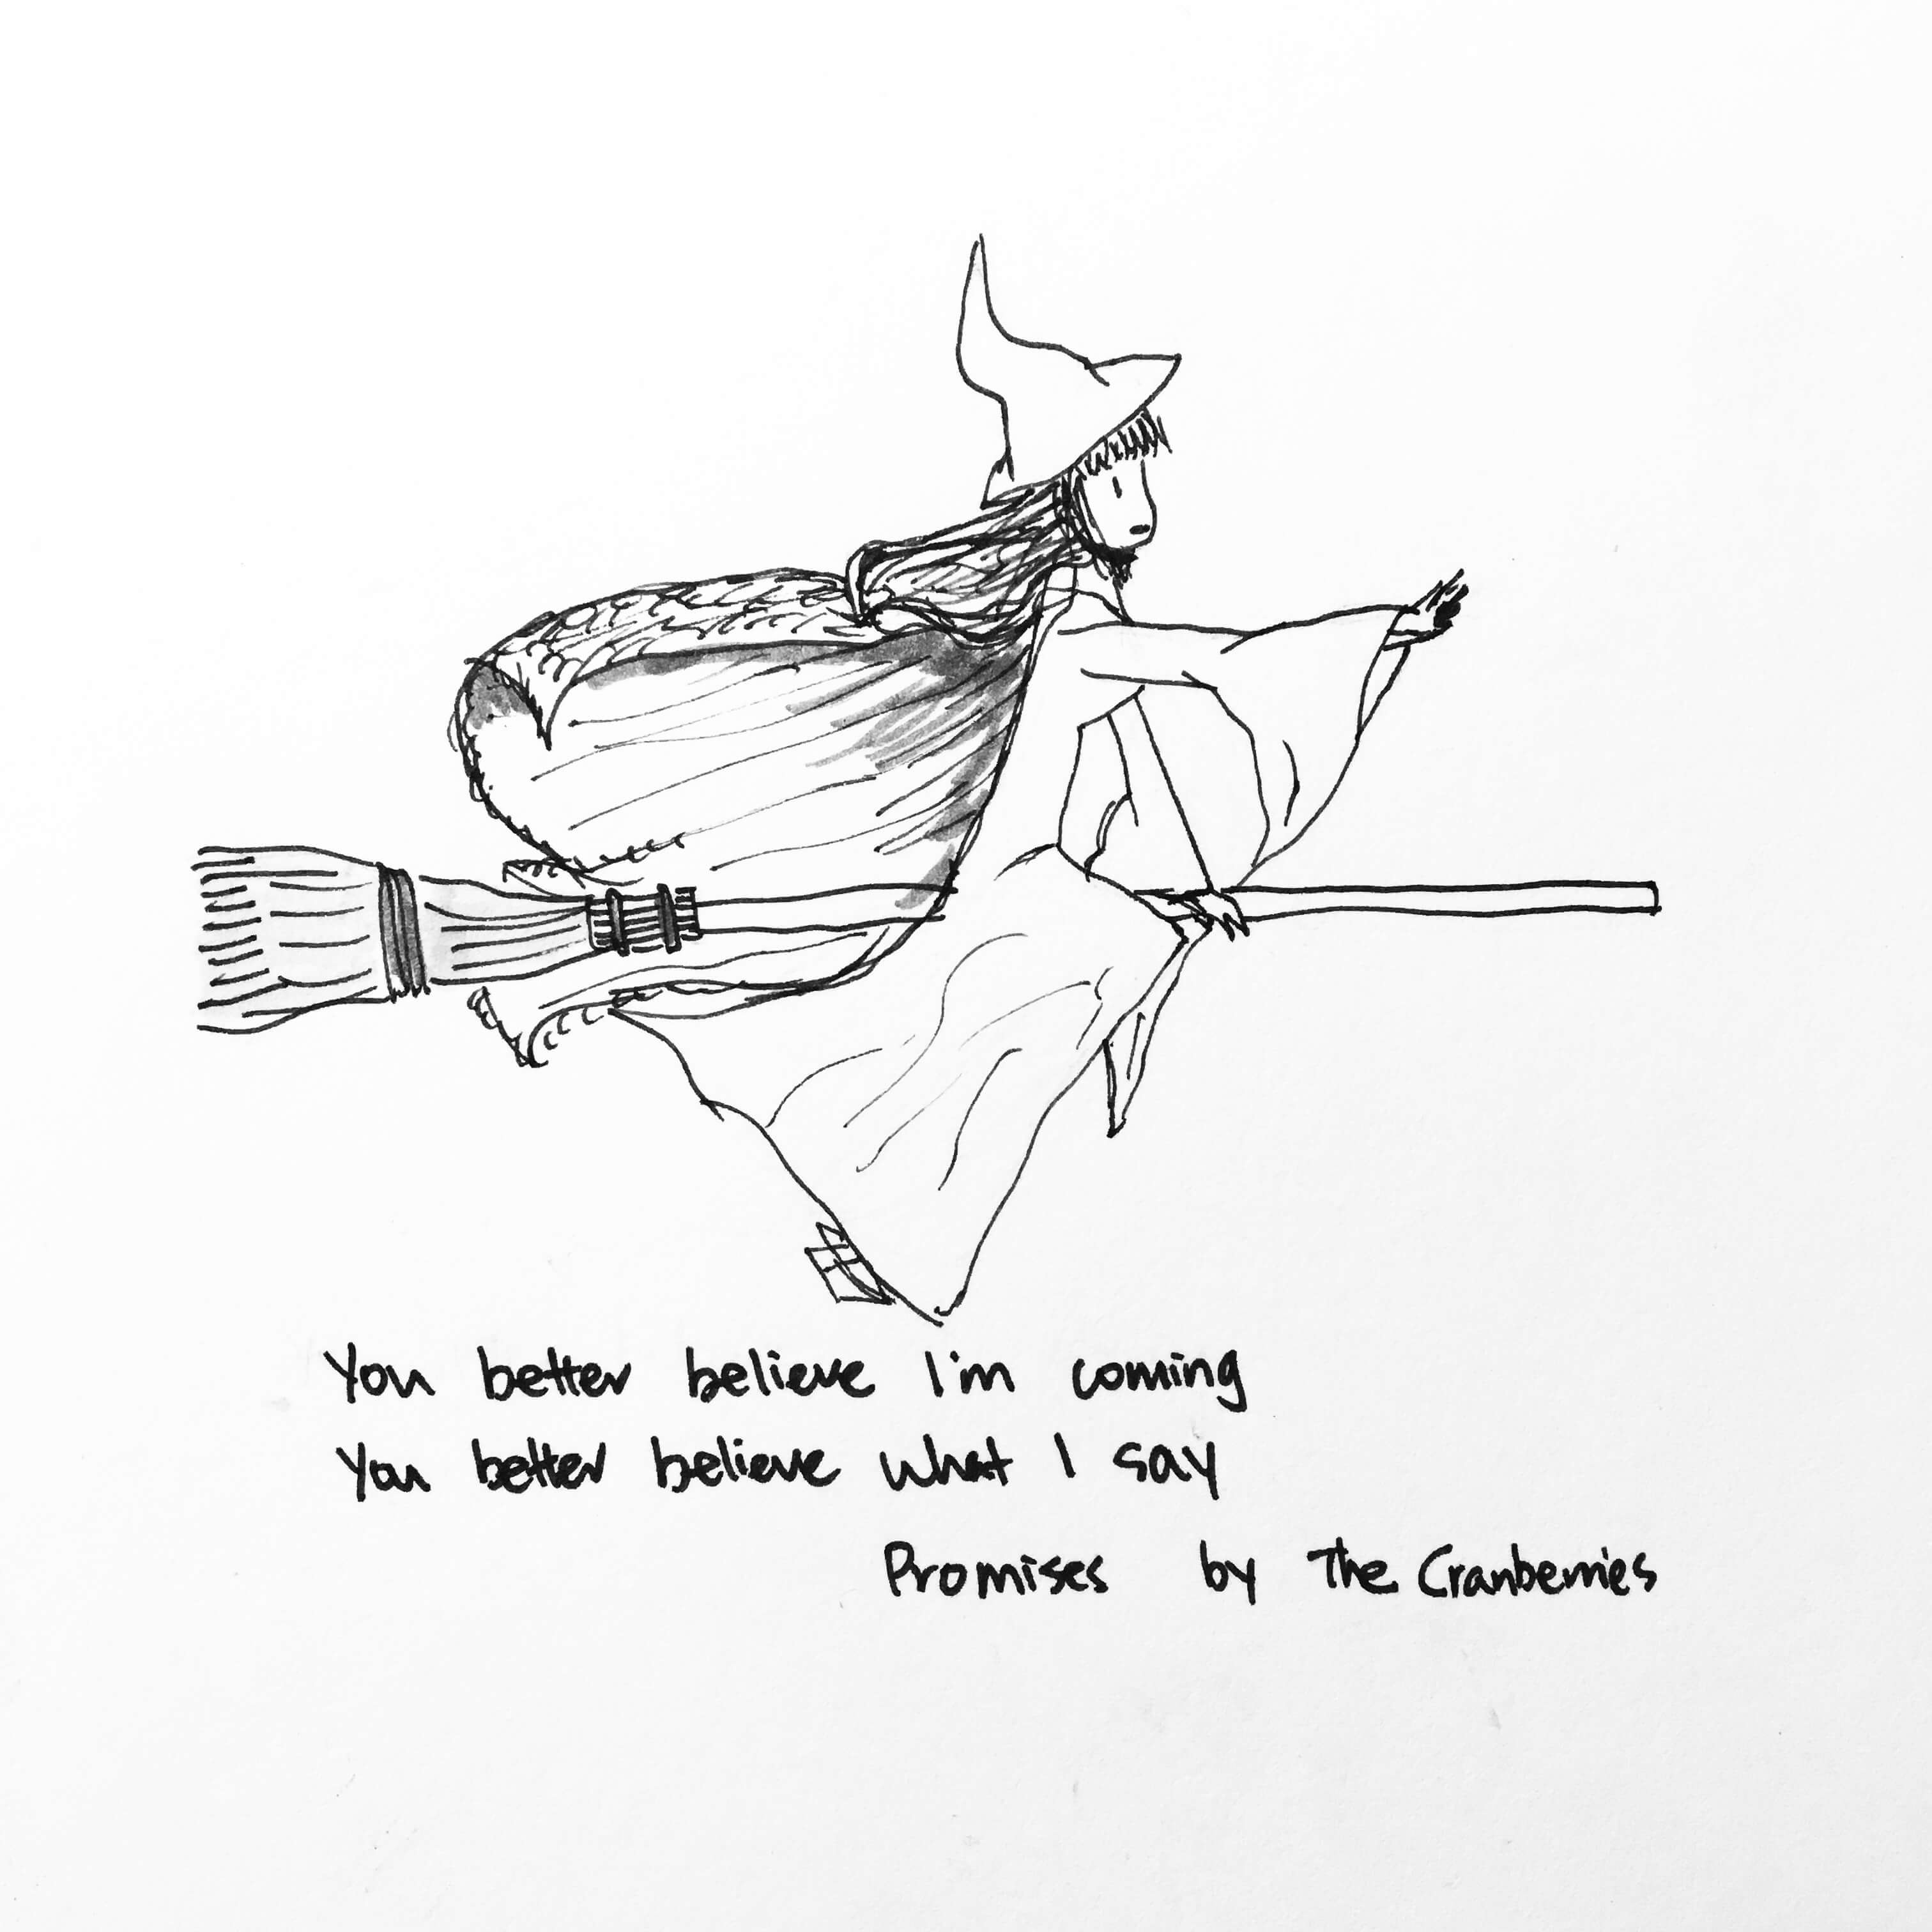 You better believe I'm coming
You better believe what I say
Promises by The Cranberries